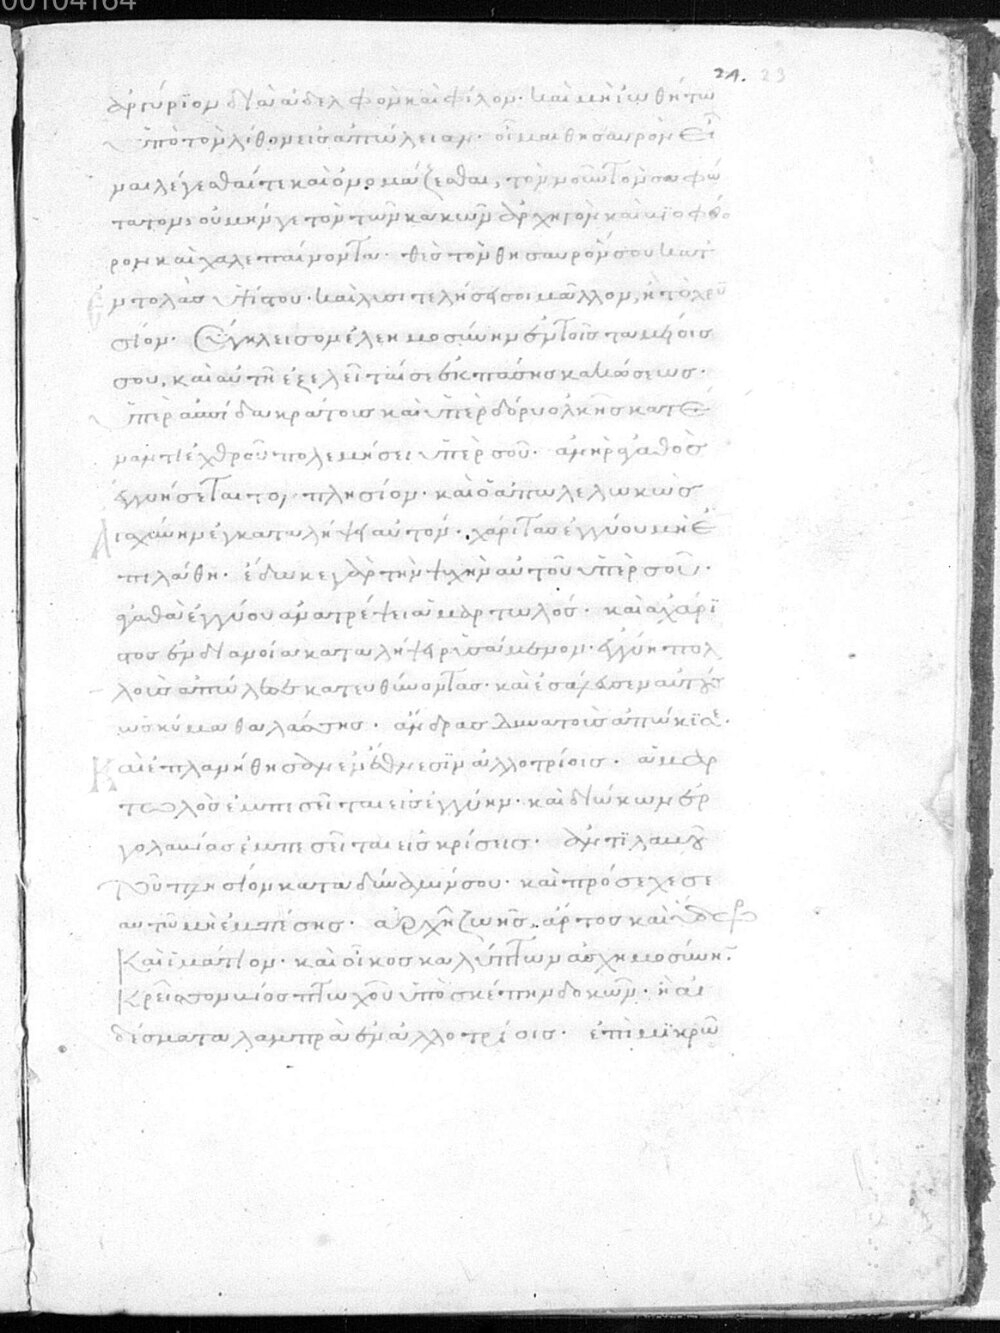 00104164
24. 23
ἀργύριον δι' ἀδελφὸν καὶ φίλον· καὶ μὴ ἰωθήτω
ὑπὸ τὸν λίθον εἰς ἀπώλειαν· οἶμαι θησαυρὸν εἶ
ναι λέγεσθαί τε καὶ ὀνομάζεσθαι, τὸν νοῦν τὸν σοφώ
τατον· οὐ μήν γε τὸν τῶν κακῶν ἀρχηγὸν καὶ
καὶ χαλεπαίνοντα· θὲς τὸν θησαυρόν σου κατ'
ἐντολὰς ὑψίστου· καὶ λυσιτελήσει σοι μᾶλλον, ἢ τὸ χρυ
σίον· Σύγκλεισον ἐλεημοσύνην ἐν τοῖς ταμείοις
σου, καὶ αὐτὴ ἐξελεῖταί σε ἐκ πάσης κακώσεως·
ὑπὲρ ἀσπίδα κράτους καὶ ὑπὲρ δόρυ ὁλκῆς κατέ
ναντι ἐχθροῦ πολεμήσει ὑπὲρ σοῦ· ἀνὴρ ἀγαθὸς
ἐγγυήσεται τὸν πλησίον· καὶ ὁ ἀπολελωκὼς
αἰσχύνην ἐγκαταλήψει αὐτόν· χάριτας ἐγγύου μὴ ἐ
πιλάθῃ· ἔδωκε γὰρ τὴν ψυχὴν αὐτοῦ ὑπὲρ σοῦ·
ἀγαθὰ ἐγγύου ἀνατρέψει ἁμαρτωλός· καὶ ἀχάρι
στος ἐν διανοίᾳ καταλήψει ῥυσάμενον· ἐγγύη πολ
λοὺς ἀπώλεσε κατευθύνοντας· καὶ ἐσάλευσεν αὐτοὺς
ὡς κῦμα θαλάσσης· ἄνδρας δυνατοὺς ἀπῴκισε·
Καὶ ἐπλανήθησαν ἐν ἔθνεσιν ἀλλοτρίοις· ἁμαρ
τωλὸς ἐμπεσεῖται εἰς ἐγγύην· καὶ διώκων ἐρ
γολαβίας ἐμπεσεῖται εἰς κρίσεις· ἀντιλαβοῦ
τοῦ πλησίον κατὰ δύναμίν σου· καὶ πρόσεχε σε
αυτῷ μὴ ἐμπέσῃς· ἀρχὴ ζωῆς, ἄρτος καὶ ὕδωρ
Καὶ ἱμάτιον· καὶ οἶκος καλύπτων ἀσχημοσύνην·
Κρείσσον βίος πτωχοῦ ὑπὸ σκέπην δοκῶν· ἢ ἐ
δέσματα λαμπρὰ ἐν ἀλλοτρίοις· ἐπὶ μικρῷ